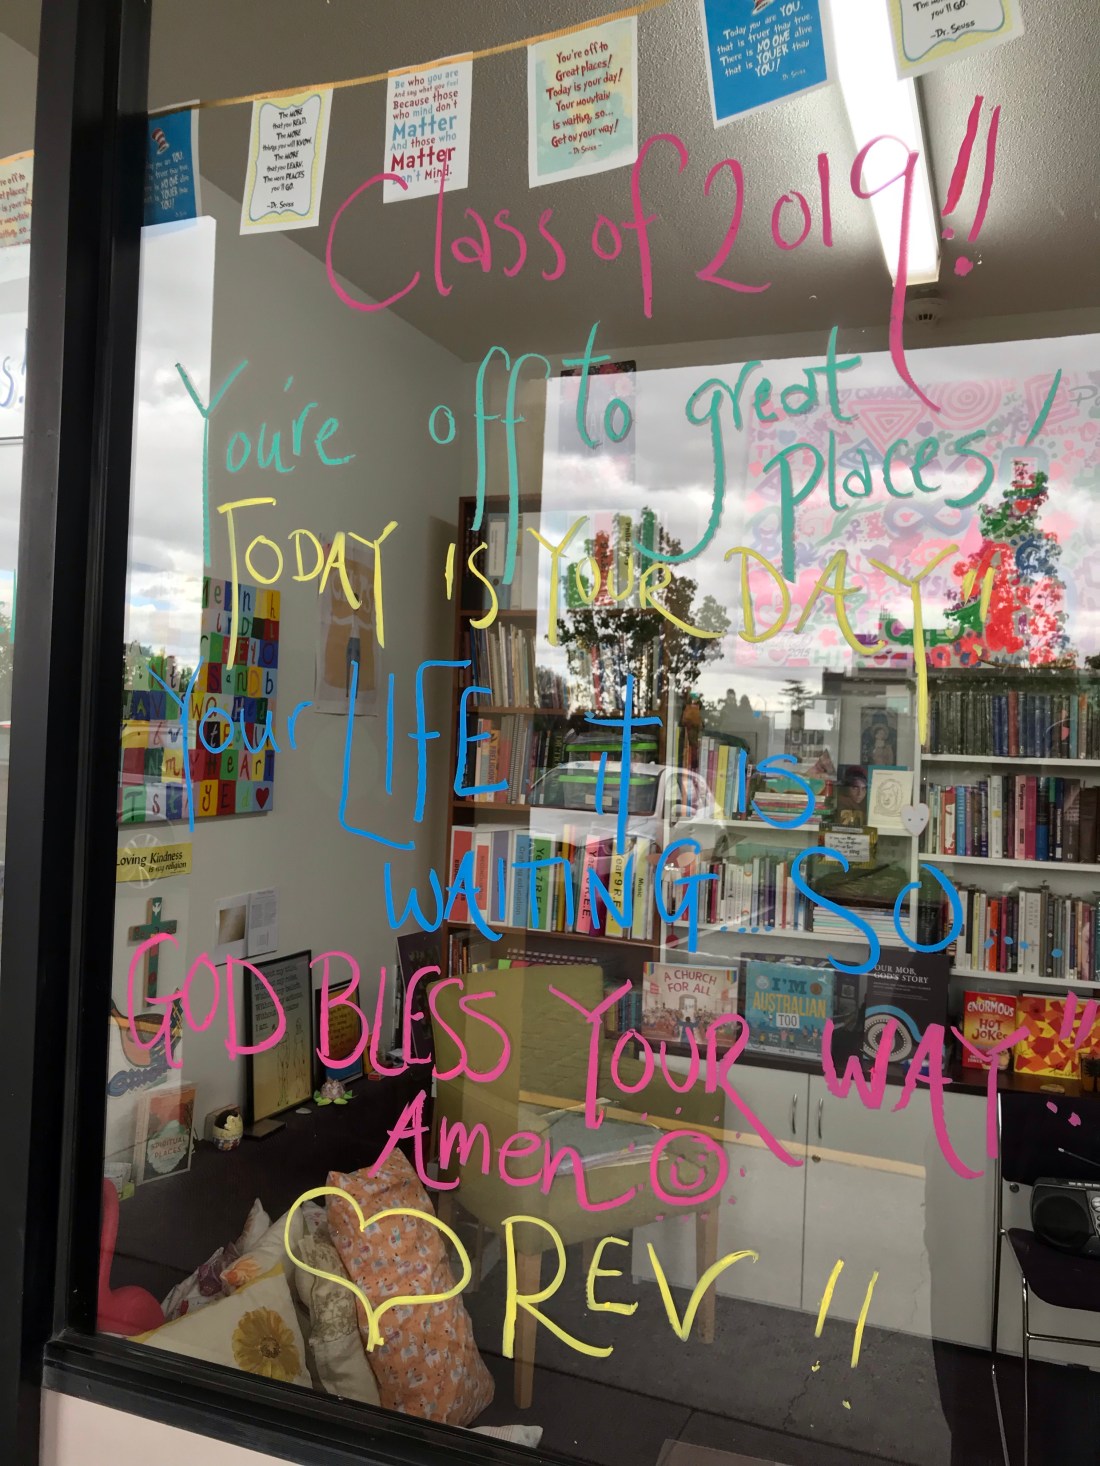 Today you are YOU,
that is truer than true.
There is NO ONE alive
that is YOUER than
YOU!
Dr. Seuss
you'll GO.
-Dr. Seuss
You're off to
Great places!
Today is your day!
Your mountain
is waiting, so...
Get on your way!
-Dr. Seuss-
Be who you are
And say what you feel
Because those
who mind don't
Matter
And those who
Matter
Don't Mind.
The MORE
that you READ,
The MORE
things you will KNOW.
The MORE
that you LEARN,
The more PLACES
you'll GO.
-Dr. Seuss
Class of 2019!!
You're off to great
places!
TODAY IS YOUR DAY!!
Your LIFE IT IS
WAITING.... SO....
GOD BLESS YOUR WAY!!
Amen
REV!!
Loving Kindness
is my religion
A CHURCH
FOR ALL
I'M
AUSTRALIAN
TOO
OUR MOB,
GOD'S STORY
ENORMOUS
HOT
JOKES
SPIRITUAL
PLACES